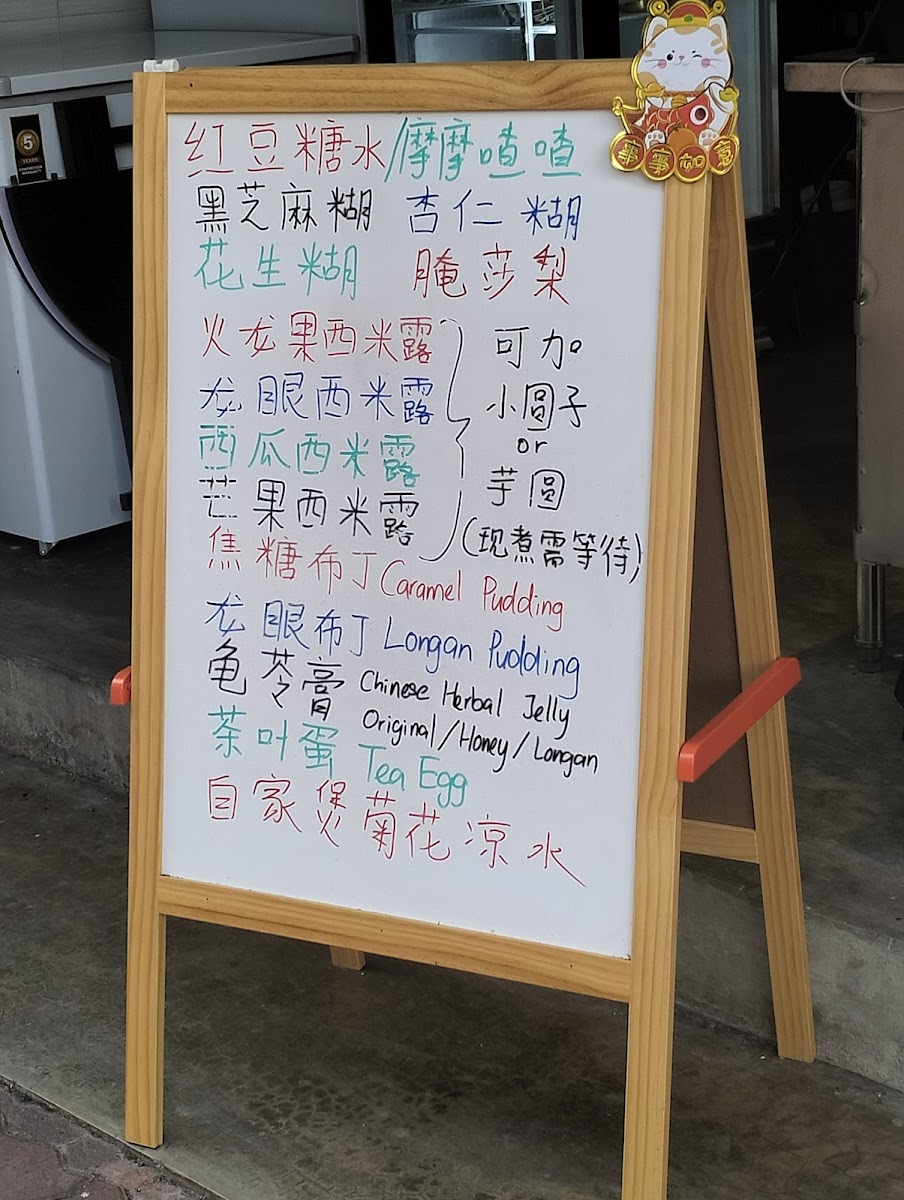 红豆糖水/摩摩喳喳
黑芝麻糊 杏仁糊
花生糊 腌莎梨
火龙果西米露
龙眼西米露
西瓜西米露
芒果西米露
可加
小圆子
or
芋圆
(现煮需等待)
焦糖布丁 Caramel Pudding
龙眼布丁 Longan Pudding
龟苓膏 Chinese Herbal Jelly
Original/Honey/Longan
茶叶蛋 Tea Egg
自家煲菊花凉水
事事如意
5
YEARS